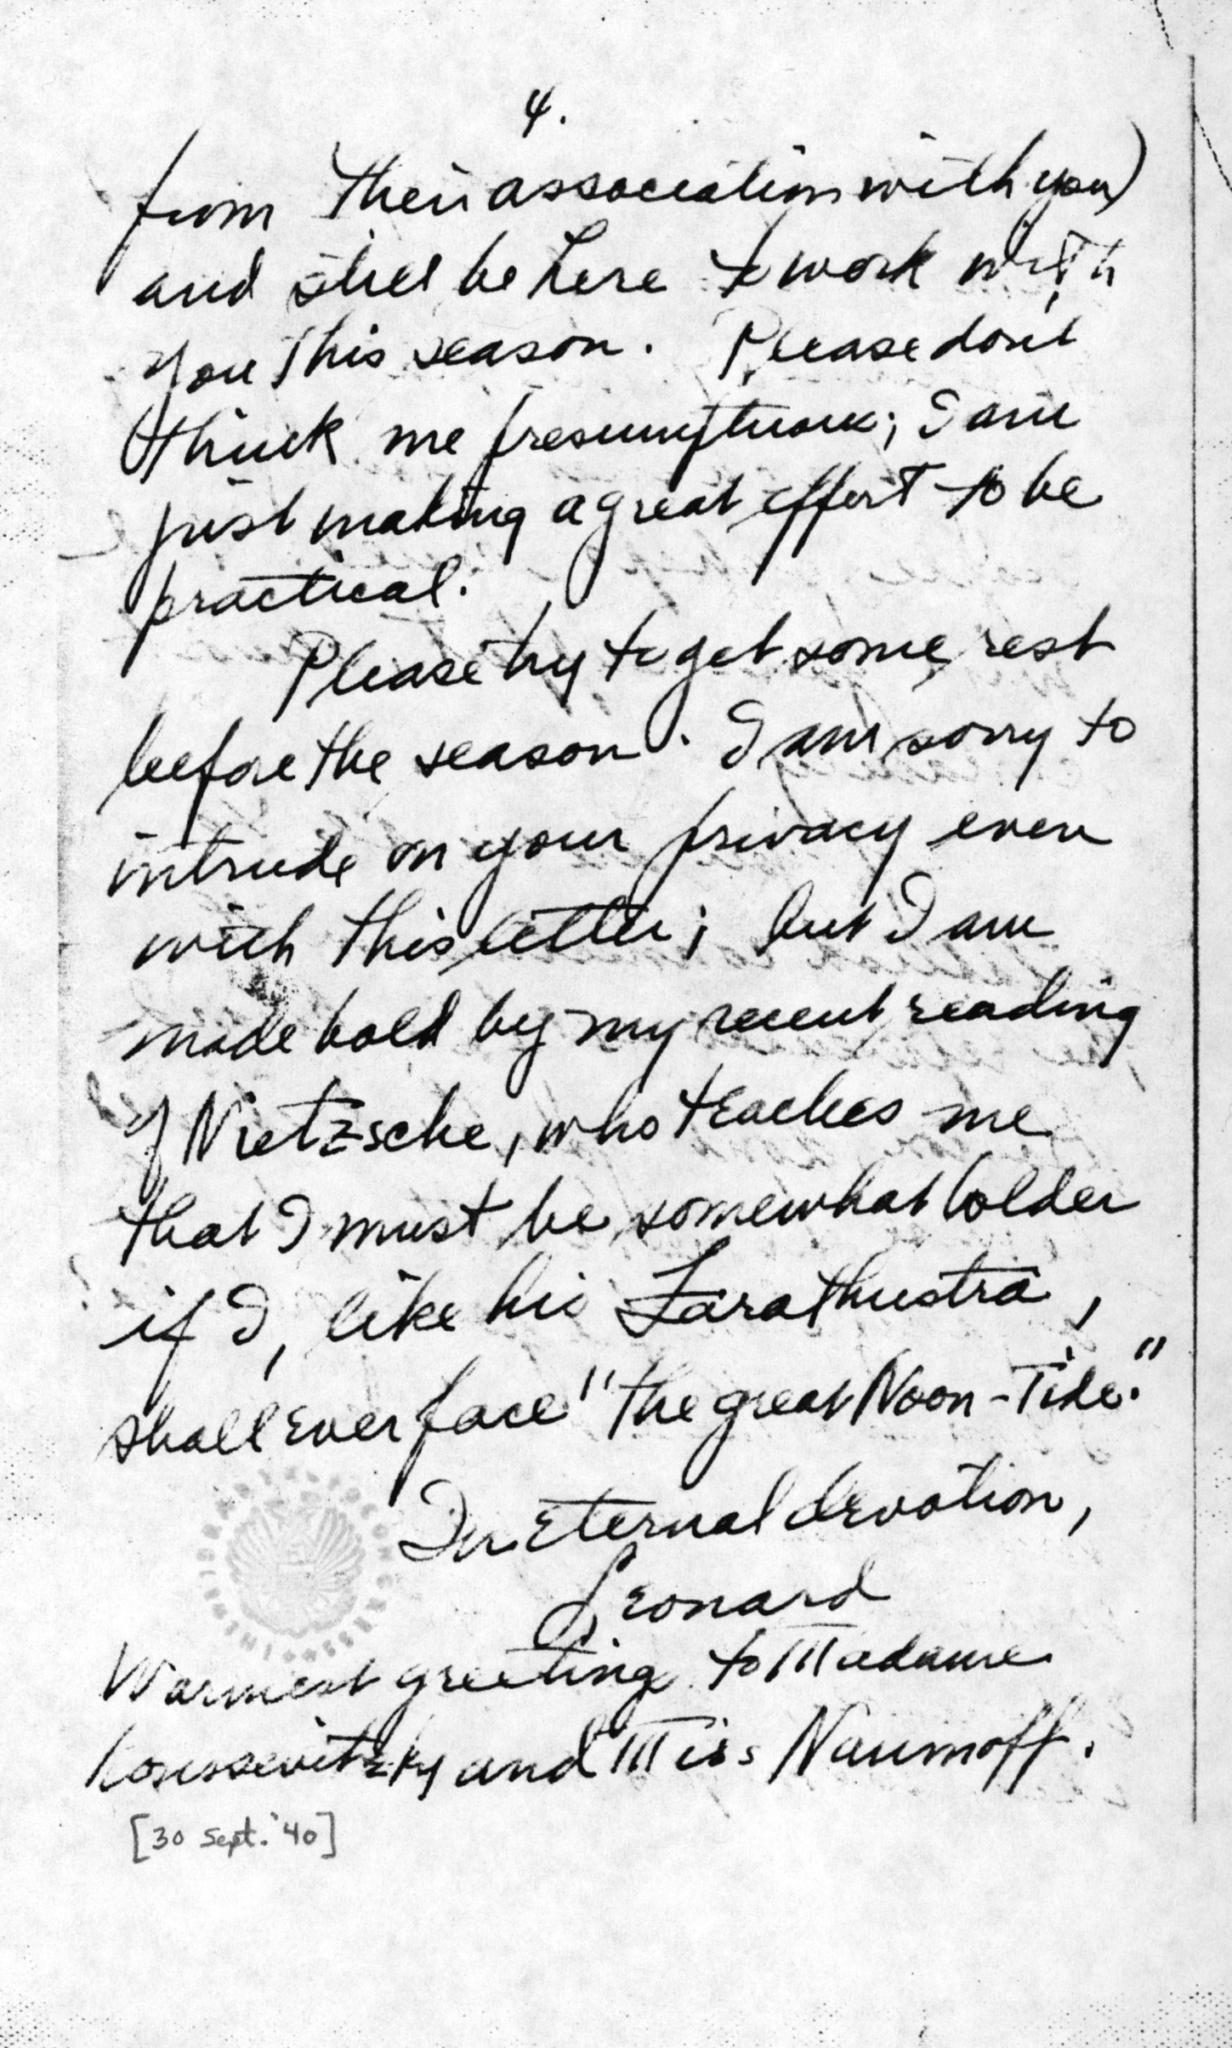 4.
from their association with you)
and still be here to work with
you this season. Please don't
think me presumptuous; I am
just making a great effort to be
practical.
Please try to get some rest
before the season. I am sorry to
intrude on your privacy even
with this letter; but I am
made bold by my recent reading
of Nietzsche, who teaches me
that I must be somewhat bolder
if I, like his Zarathustra,
shall ever face "the great Noon-Tide."
In Eternal devotion,
Leonard
Warmest greeting to Madame
Koussevitzky and Miss Naumoff.
[30 Sept. '40]